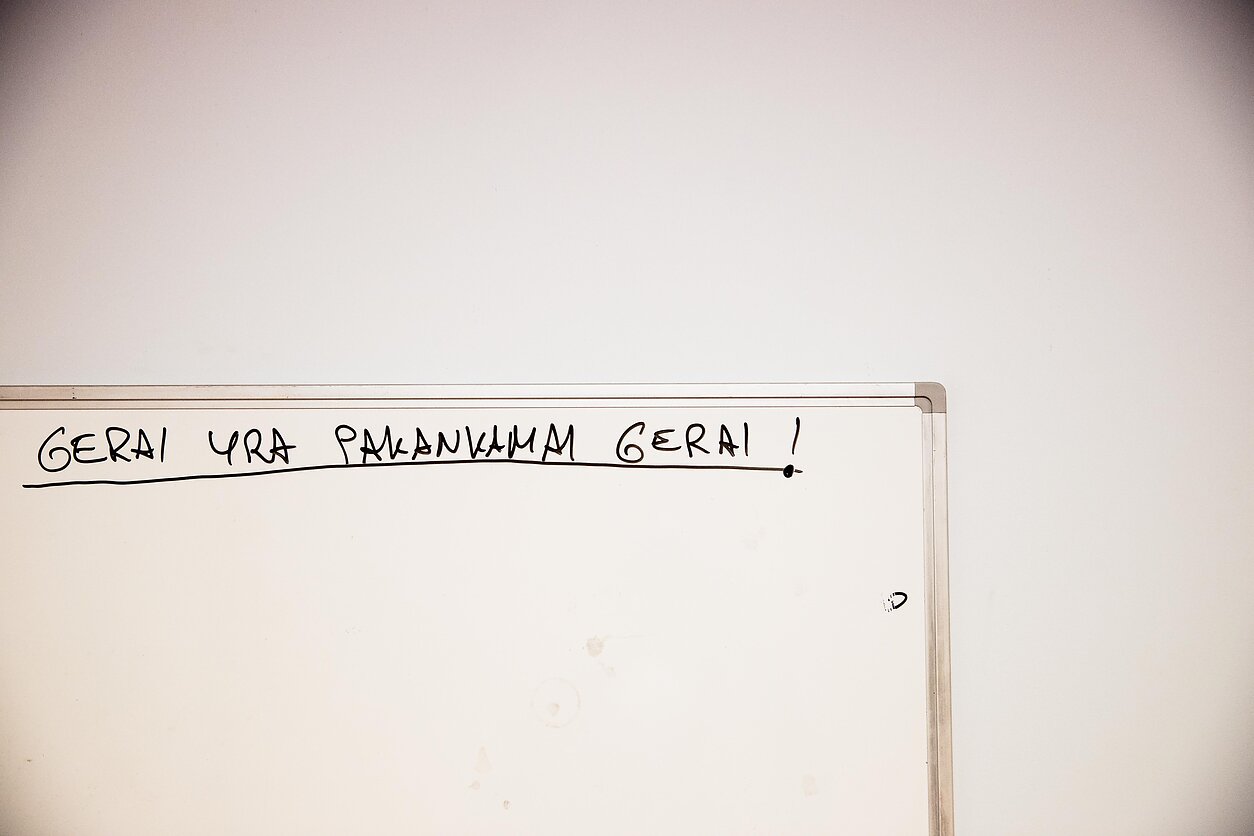 GERAI YRA PAKANKAMAI GERAI !
:D